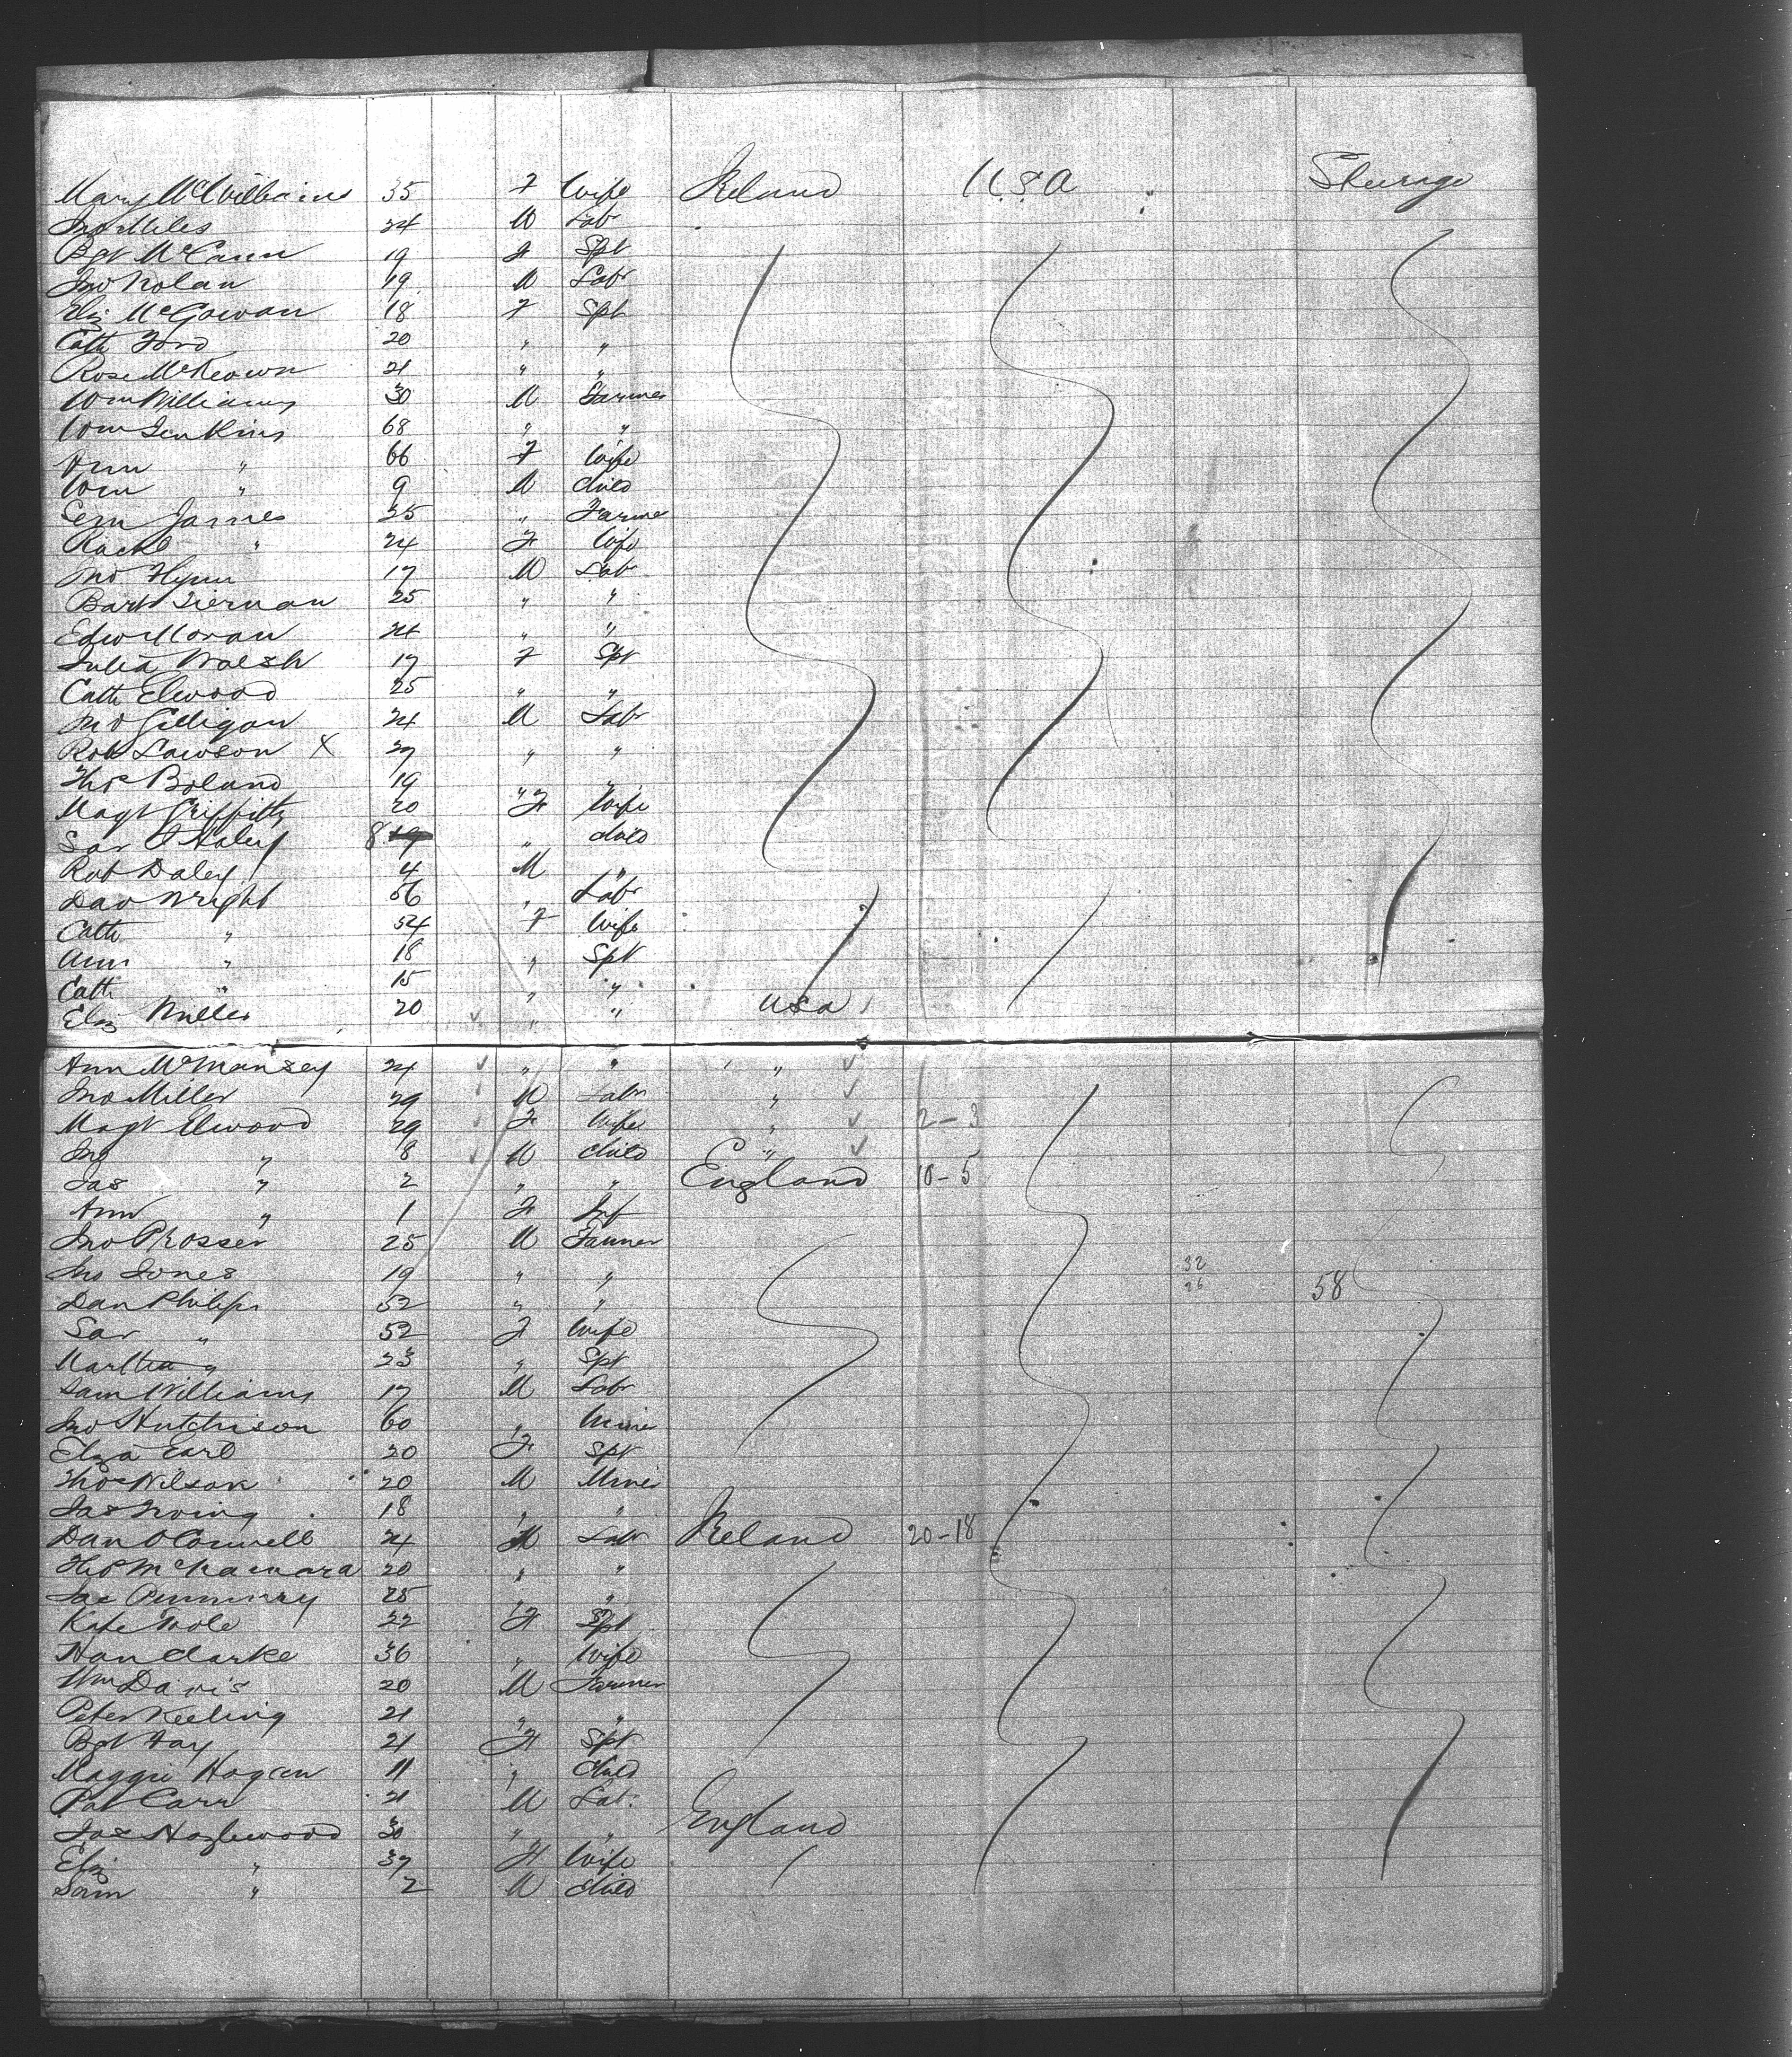 Mary McWilliams 35 F Wife Ireland U.S.A Steerage
Jno Miles 24 M Labr
Bgt McCann 19 F Spt
Jno Nolan 19 M Labr
Eliz McGowan 18 F Spt
Cath Ford 20 " "
Rose McKeown 21 " "
Wm Williams 30 M Farmer
Wm Jenkins 68 " "
Ann " 66 F Wife
Wm " 9 M Child
Eym James 25 " Farmer
Rachl " 24 F Wife
Jno Flynn 17 M Labr
Bart Tiernan 25 " "
Edw Moran 24 " "
Julia Walsh 17 F Spt
Cath Elwood 25 " "
Jno Gilligan 24 M Labr
Robt Lawson X 27 " "
Thos Boland 19 " "
Magt Griffiths 20 F Wife
Sar Haley 8 " Child
Rob Daley 4 M "
Dav Wright 56 " Labr
Cath " 54 F Wife
Ann " 18 " Spt
Cath " 15 " "
Eliz Miller 20 " " USA
Ann McManzey 24 " " "
Jno Miller 29 M Labr "
Magt Elwood 29 F Wife " 2-3
Jno " 8 M Child "
Jas " 2 " " England 10-5
Ann " 1 F Inf
Jno Prosser 25 M Farmer
Jno Jones 19 " " 32
26 58
Dan Philips 52 " "
Sar " 52 F Wife
Martha " 23 " Spt
Sam Williams 17 M Labr
Jno Hutchison 60 " Miner
Elza Earl 20 F Spt
Thos Wilson 20 M Miner
Jas Irving 18 " "
Dan O'Connell 24 M Labr Ireland 20-18
Thos McNamara 20 " "
Jas 25 " "
Kate Toole 22 F Spt
Han Clarke 36 " Wife
Wm Davis 20 M Farmer
Peter Keeling 21 " "
Bgt Fay 21 F Spt
Maggie Hogan 11 " Child
Pat Carr 21 M Lab.
Jas Hazlewood 30 " " England
Eliz " 37 F Wife
Sam " 2 M Child